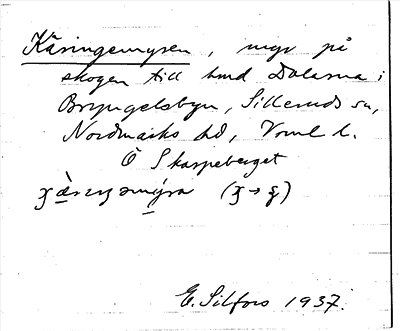 Käringemyren, myr på
skogen till hmd Dalarna i
Bryngelsbyn, Silleruds sn,
Nordmarks hd, Vrml l.
Ö Skarpeberget
E. Silfors 1937.